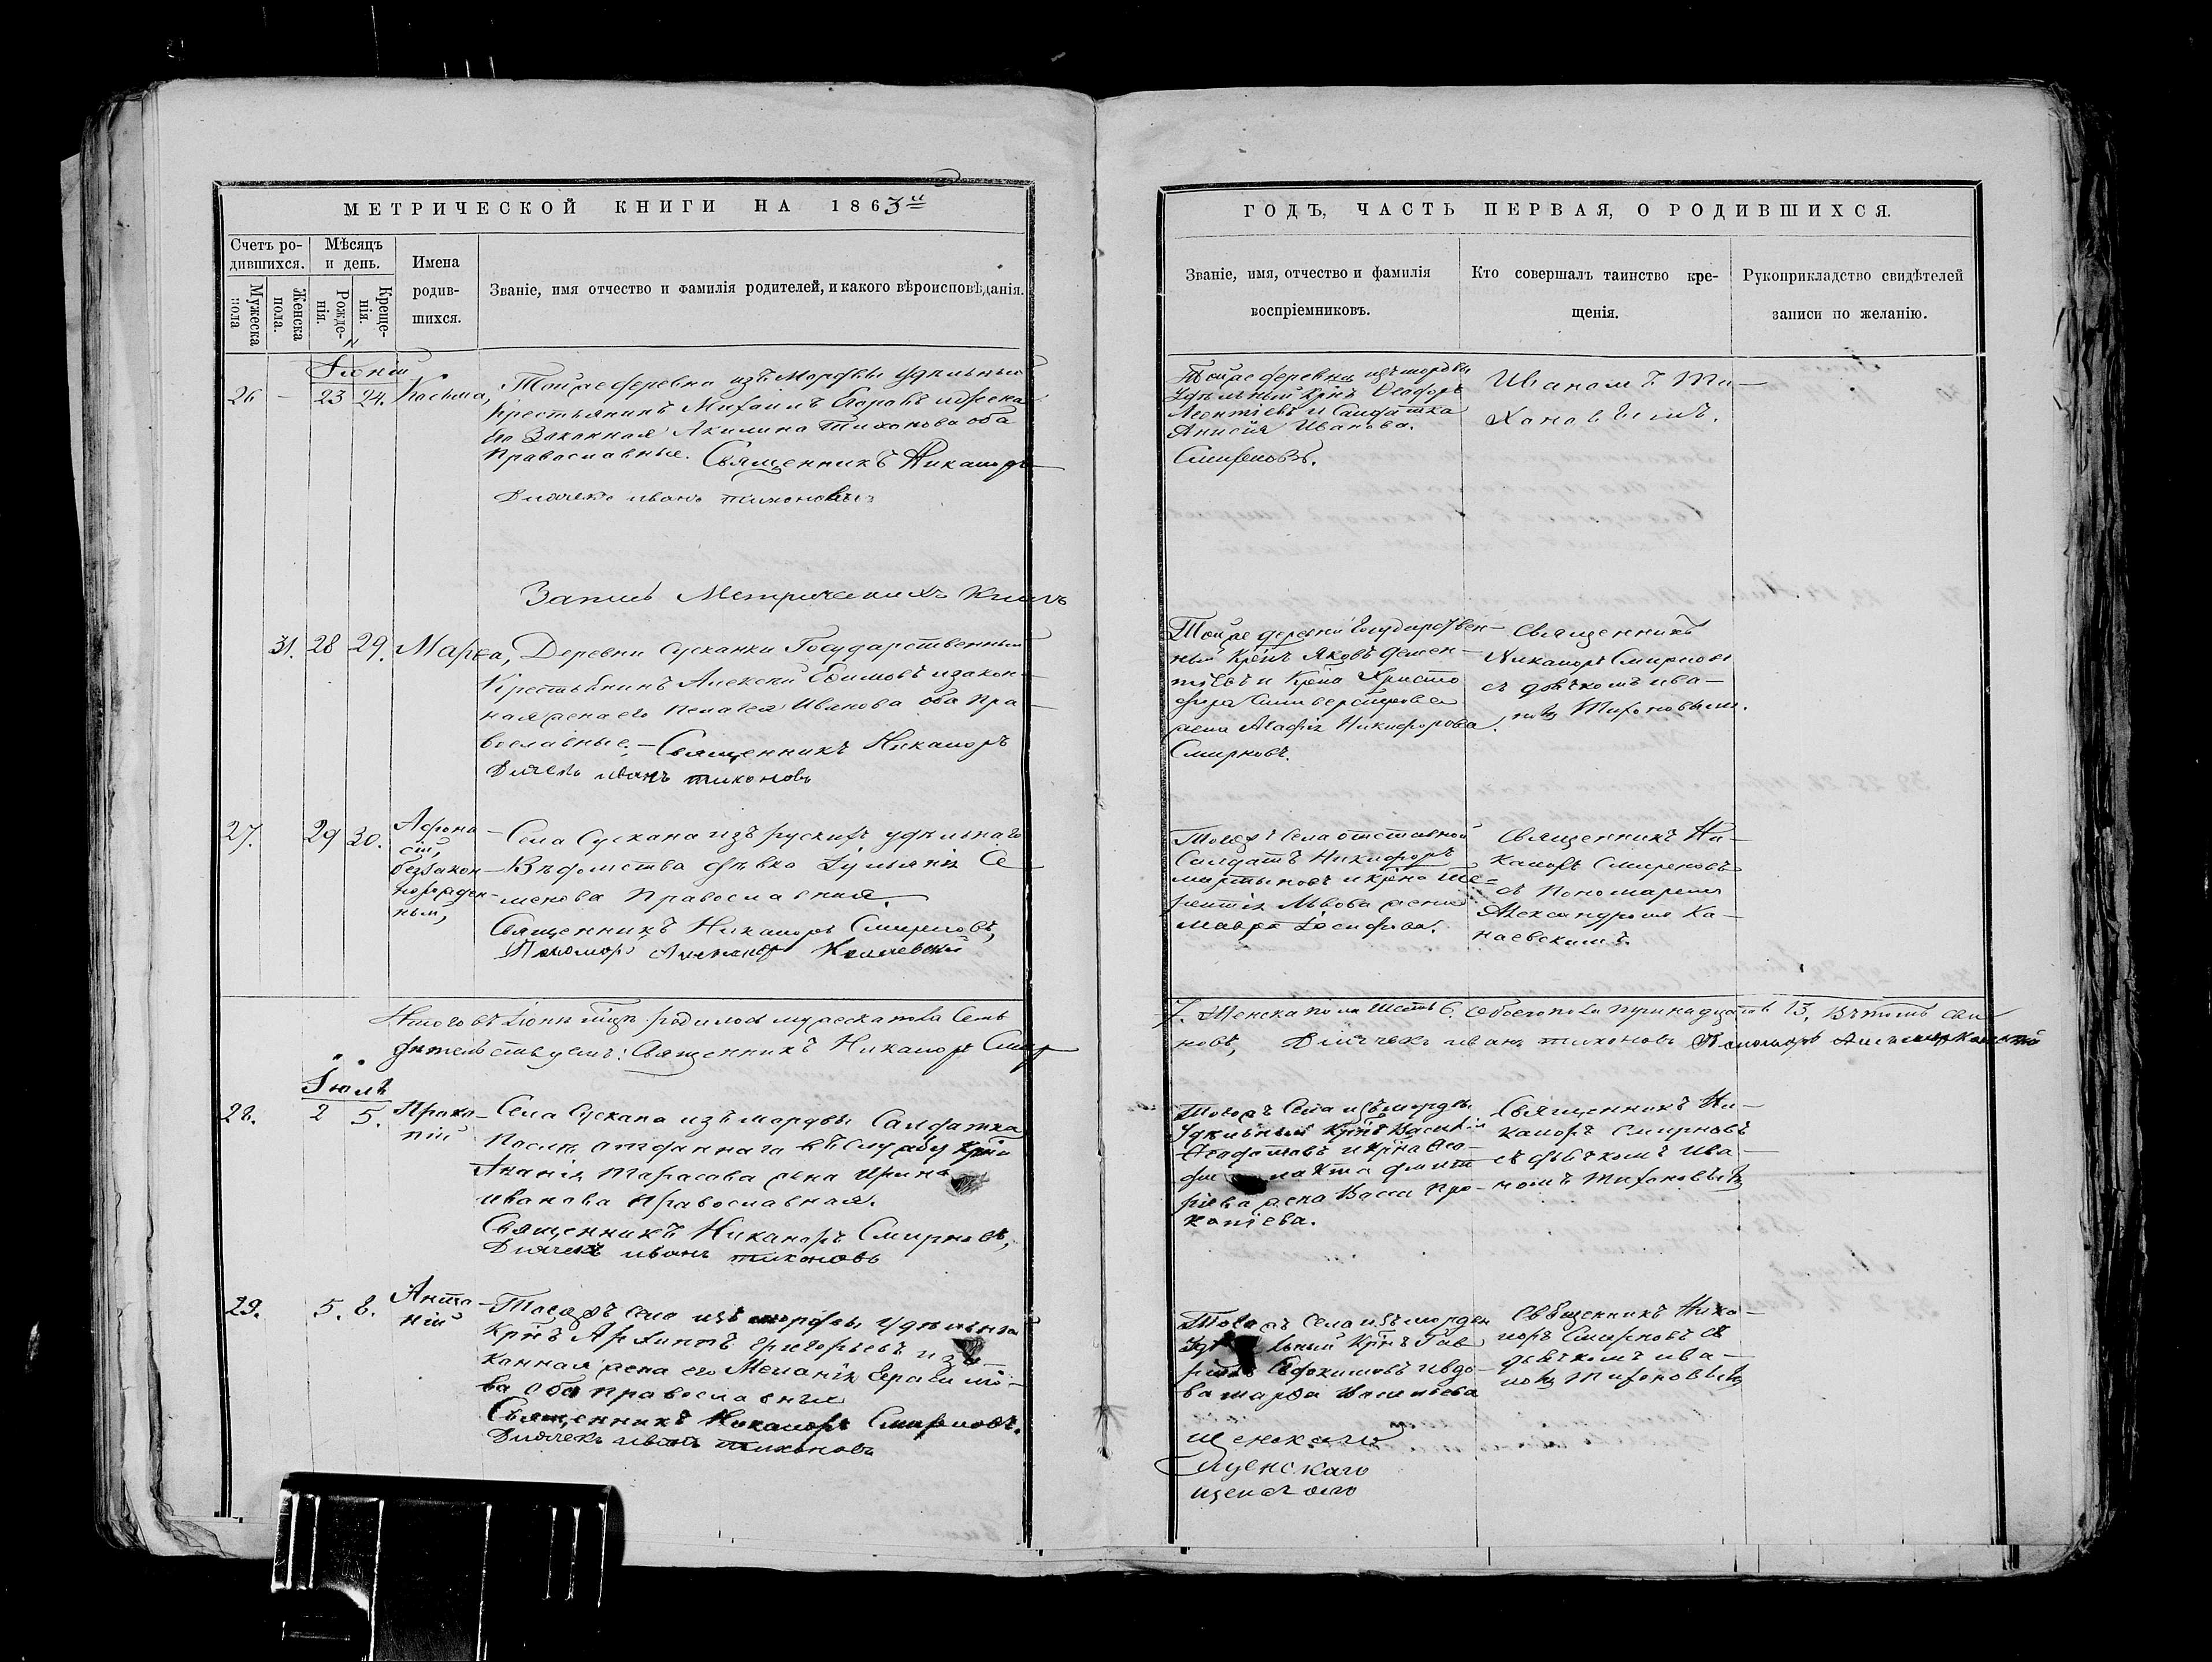 МЕТРИЧЕСКОЙ КНИГИ НА 1863й
Счетъ ро-
дившихся.
Мѣсяцъ
и день.
Мужеска
пола
Женска
пола.
Рожде-
нія.
Креще-
нія.
Имена
родив-
шихся.
Званіе, имя отчество и фамилія родителей, и какого вѣроисповѣданія.
Іюнь
26 - 23 24. Косьма,
Тойже деревни изъ Мордвы удѣльный
Крестьянинъ Михаилъ Егоровъ и жена
его Законная Акилина Тихонова оба
Православные. Священникъ Никаноръ
Дьячекъ иванъ тихоновъ
Запись Метрическихъ Книгъ
31. 28 29. Марѳа,
Деревни Сусканки Государственный
Крестьянинъ Алексѣй Ефимовъ и закон-
ная жена его Пелагея Иванова оба Пра-
вославные. - Священникъ Никаноръ
Дьячекъ иванъ тихоновъ
27. 29 30. Афона-
сій,
беззакон-
норожден-
ный,
Села Сускана изъ рускихъ удѣльнаго
Вѣдомства дѣвка Іульянія Се-
менова Православная.
Священникъ Никаноръ Смирновъ,
Пономарь Александръ Канаевский
Итого въ Іюнѣ мцѣ родилось мужеска пола Семь
дѣтельствуемъ: Священникъ Никаноръ Смир
Іюль
28. 2 5. Проко-
пій
Села Сускана изъ мордвы Салдатка
Послѣ отданнаго въ Службу Крна
Ананія Тарасова жена Ирина
Иванова Православная.
Священникъ Никаноръ Смирновъ,
Дьячекъ иванъ тихоновъ
29. 5. 8. Анто-
ній
Тогожъ села изъ мордвы удѣльный
Крнъ Архиппъ Григорьевъ и за-
конная жена его Меланія Герасимо-
ва оба православные
Священникъ Никаноръ Смирновъ.
Дьячекъ иванъ тихоновъ
ГОДЪ, ЧАСТЬ ПЕРВАЯ, О РОДИВШИХСЯ.
Званіе, имя, отчество и фамилія
воспріемниковъ.
Кто совершалъ таинство кре-
щенія.
Рукоприкладство свидѣтелей
записи по желанію.
Тойже деревни изъ мордвы
Удѣльный Крнъ Ѳеодоръ
Леонтіевъ и Салдатка
Анисія Иванова.
Смирновъ.
Иваномъ Ти-
хоновымъ.
Тойже деревни Государствен-
ный Крнъ Яковъ
и Крна Христо
фора Селиверстрова
жена Агафія Никифорова.
Смирновъ.
Священникъ
Никаноръ Смирновъ
съ дьячкомъ Ива-
номъ Тихоновымъ.
Тогожъ Села отставной
Салдатъ Никифоръ
Мартыновъ и крна
Львова жена
Мавра Іосифова.
Священникъ Ни-
каноръ Смирновъ
съ Пономаремъ
Александромъ Ка-
наевскимъ.
7. Женска пола Шесть 6. Обоего пола тринадцать 13, Въ томъ сви
новъ, Дьячекъ иванъ тихоновъ Пономарь Александръ Канаевский
Тогожъ Села изъ мордвы
Удѣльный Крнъ Василій
и Крна Ѳео-
фи лакта Дмит-
ріева жена Васса Про-
копіева.
Священникъ Ни-
каноръ Смирновъ
съ дьячкомъ Ива-
номъ Тихоновымъ
Тогожъ Села изъ мордвы
Удѣльный Крнъ Гав-
рилъ Евдокимовъ и вдо-
ва Марѳа Васильева
Священникъ Ника-
норъ Смирновъ съ
дьячкомъ ива-
номъ Тихоновымъ